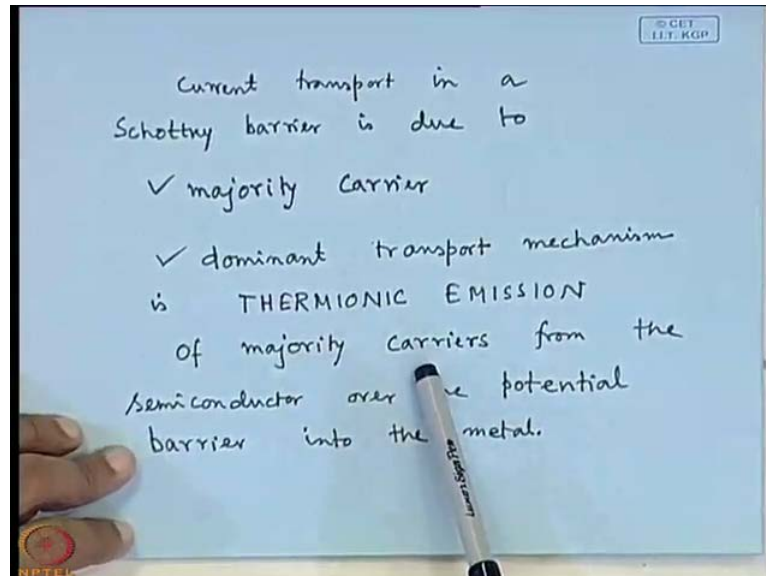 © CET
I.I.T. KGP
Current transport in a
Schottky barrier is due to
✓ majority carrier
✓ dominant transport mechanism
is THERMIONIC EMISSION
of majority carriers from the
semiconductor over potential
barrier into the metal.
NPTEL